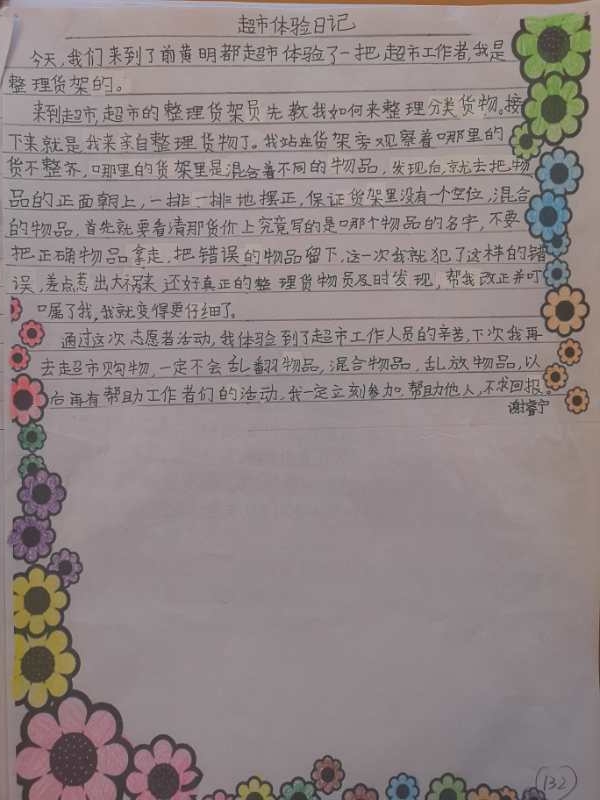 超市体验日记
今天,我们来到了前黄明都超市体验了一把超市工作者,我是
整理货架的。
来到超市,超市的整理货架员先教我如何来整理分类货物。接
下来就是我亲自整理货物了。我站在货架旁观察着哪里的
货不整齐,哪里的货架里是混合着不同的物品,发现后,就去把物
品的正面朝上,一排一排地摆正,保证货架里没有一个空位,混合
的物品,首先就要看清那货价上究竟写的是哪个物品的名字,不要
把正确物品拿走,把错误的物品留下,这一次我就犯了这样的错
误,差点惹出大祸来,还好真正的整理货物员及时发现,帮我改正并叮
嘱了我,我就变得更仔细了。
通过这次志愿者活动,我体验到了超市工作人员的辛苦,下次我再
去超市购物,一定不会乱翻物品,混合物品,乱放物品,以
后再有帮助工作者们的活动,我一定立刻参加,帮助他人,不求回报。
谢睿宁
132